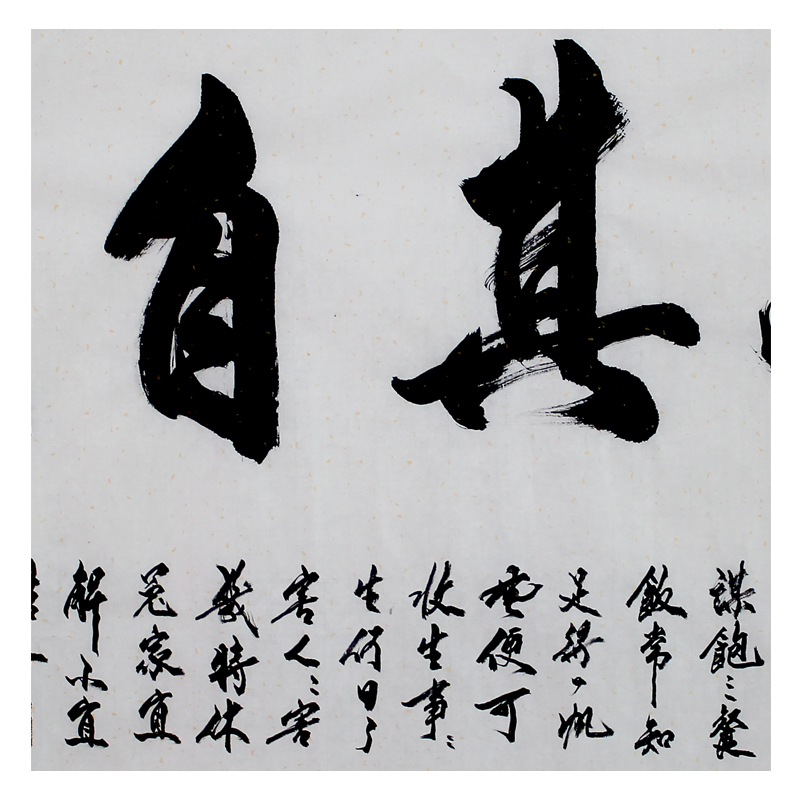 其自
謀飽三餐
飯常知
足得一帆
風便可
收生事〻
生何日了
害人〻害
幾時休
冤家宜
解不宜